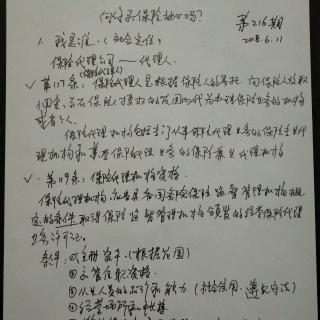 何谓保险代理?
第216期
2018.6.11
1. 我是谁.(社会定位)
保险代理公司 —— 代理人.
(保险代理人)
✓ 第117条: 保险代理人是根据保险人的委托、向保险人收取
佣金、并在保险人授权的范围内代为办理保险业务的机构
或者个人.
保险代理机构包括专门从事保险代理业务的保险专业代
理机构和兼营保险代理业务的保险兼业代理机构
✓ 第119条: 保险代理机构资格.
保险代理机构, 应当具备国务院保险监督管理机构规
定的条件 取得保险监督管理机构颁发的经营保险代理
业务许可证.
条件: ①注册资本 (根据范围)
②高管任职资格.
③从业人员的品行和能力 (社会信用. 遵纪守法)
④经营场所